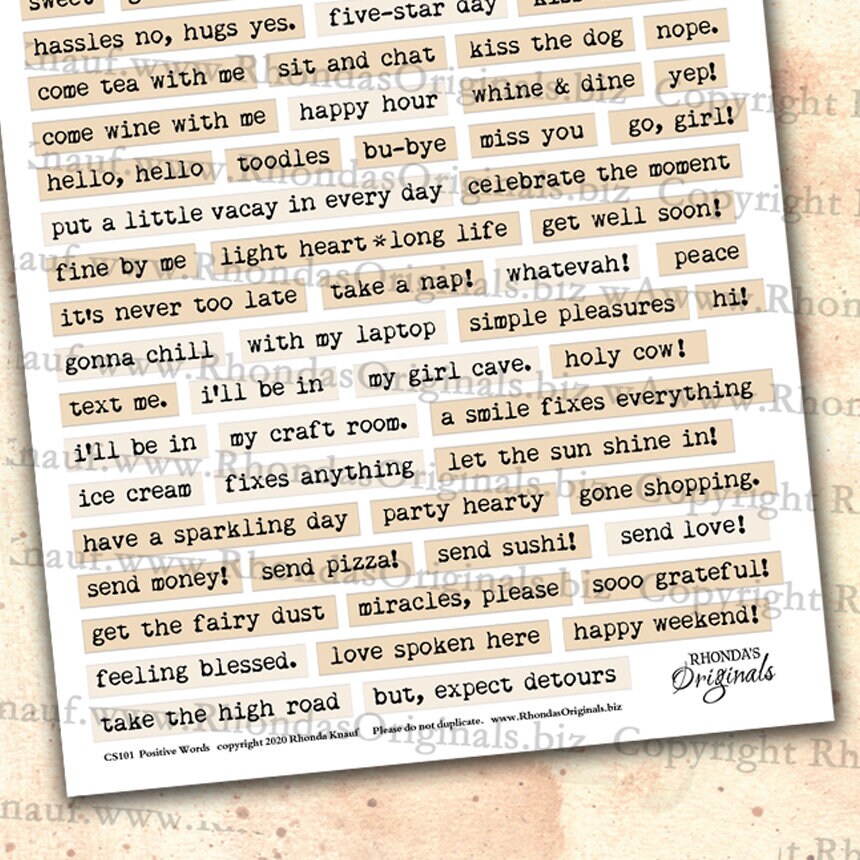 sweet
hassles no, hugs yes. five-star day
come tea with me sit and chat kiss the dog nope.
come wine with me happy hour whine & dine yep!
hello, hello toodles bu-bye miss you go, girl!
put a little vacay in every day celebrate the moment
fine by me light heart*long life get well soon!
it's never too late take a nap! whatevah! peace
gonna chill with my laptop simple pleasures hi!
text me. i'll be in my girl cave. holy cow!
i'll be in my craft room. a smile fixes everything
ice cream fixes anything let the sun shine in!
have a sparkling day party hearty gone shopping.
send money! send pizza! send sushi! send love!
get the fairy dust miracles, please sooo grateful!
feeling blessed. love spoken here happy weekend!
take the high road but, expect detours
RHONDA'S
Originals
CS101 Positive Words copyright 2020 Rhonda Knauf Please do not duplicate. www.RhondasOriginals.biz
Knauf.www.RhondasOriginals.biz Copyright